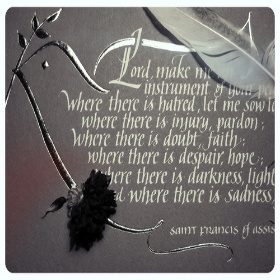 Lord, make me
instrument of your
Where there is hatred, let me sow
where there is injury, pardon;
Where there is doubt, faith;
where there is despair, hope;
where there is darkness, light
d where there is sadness,
saint francis of assis